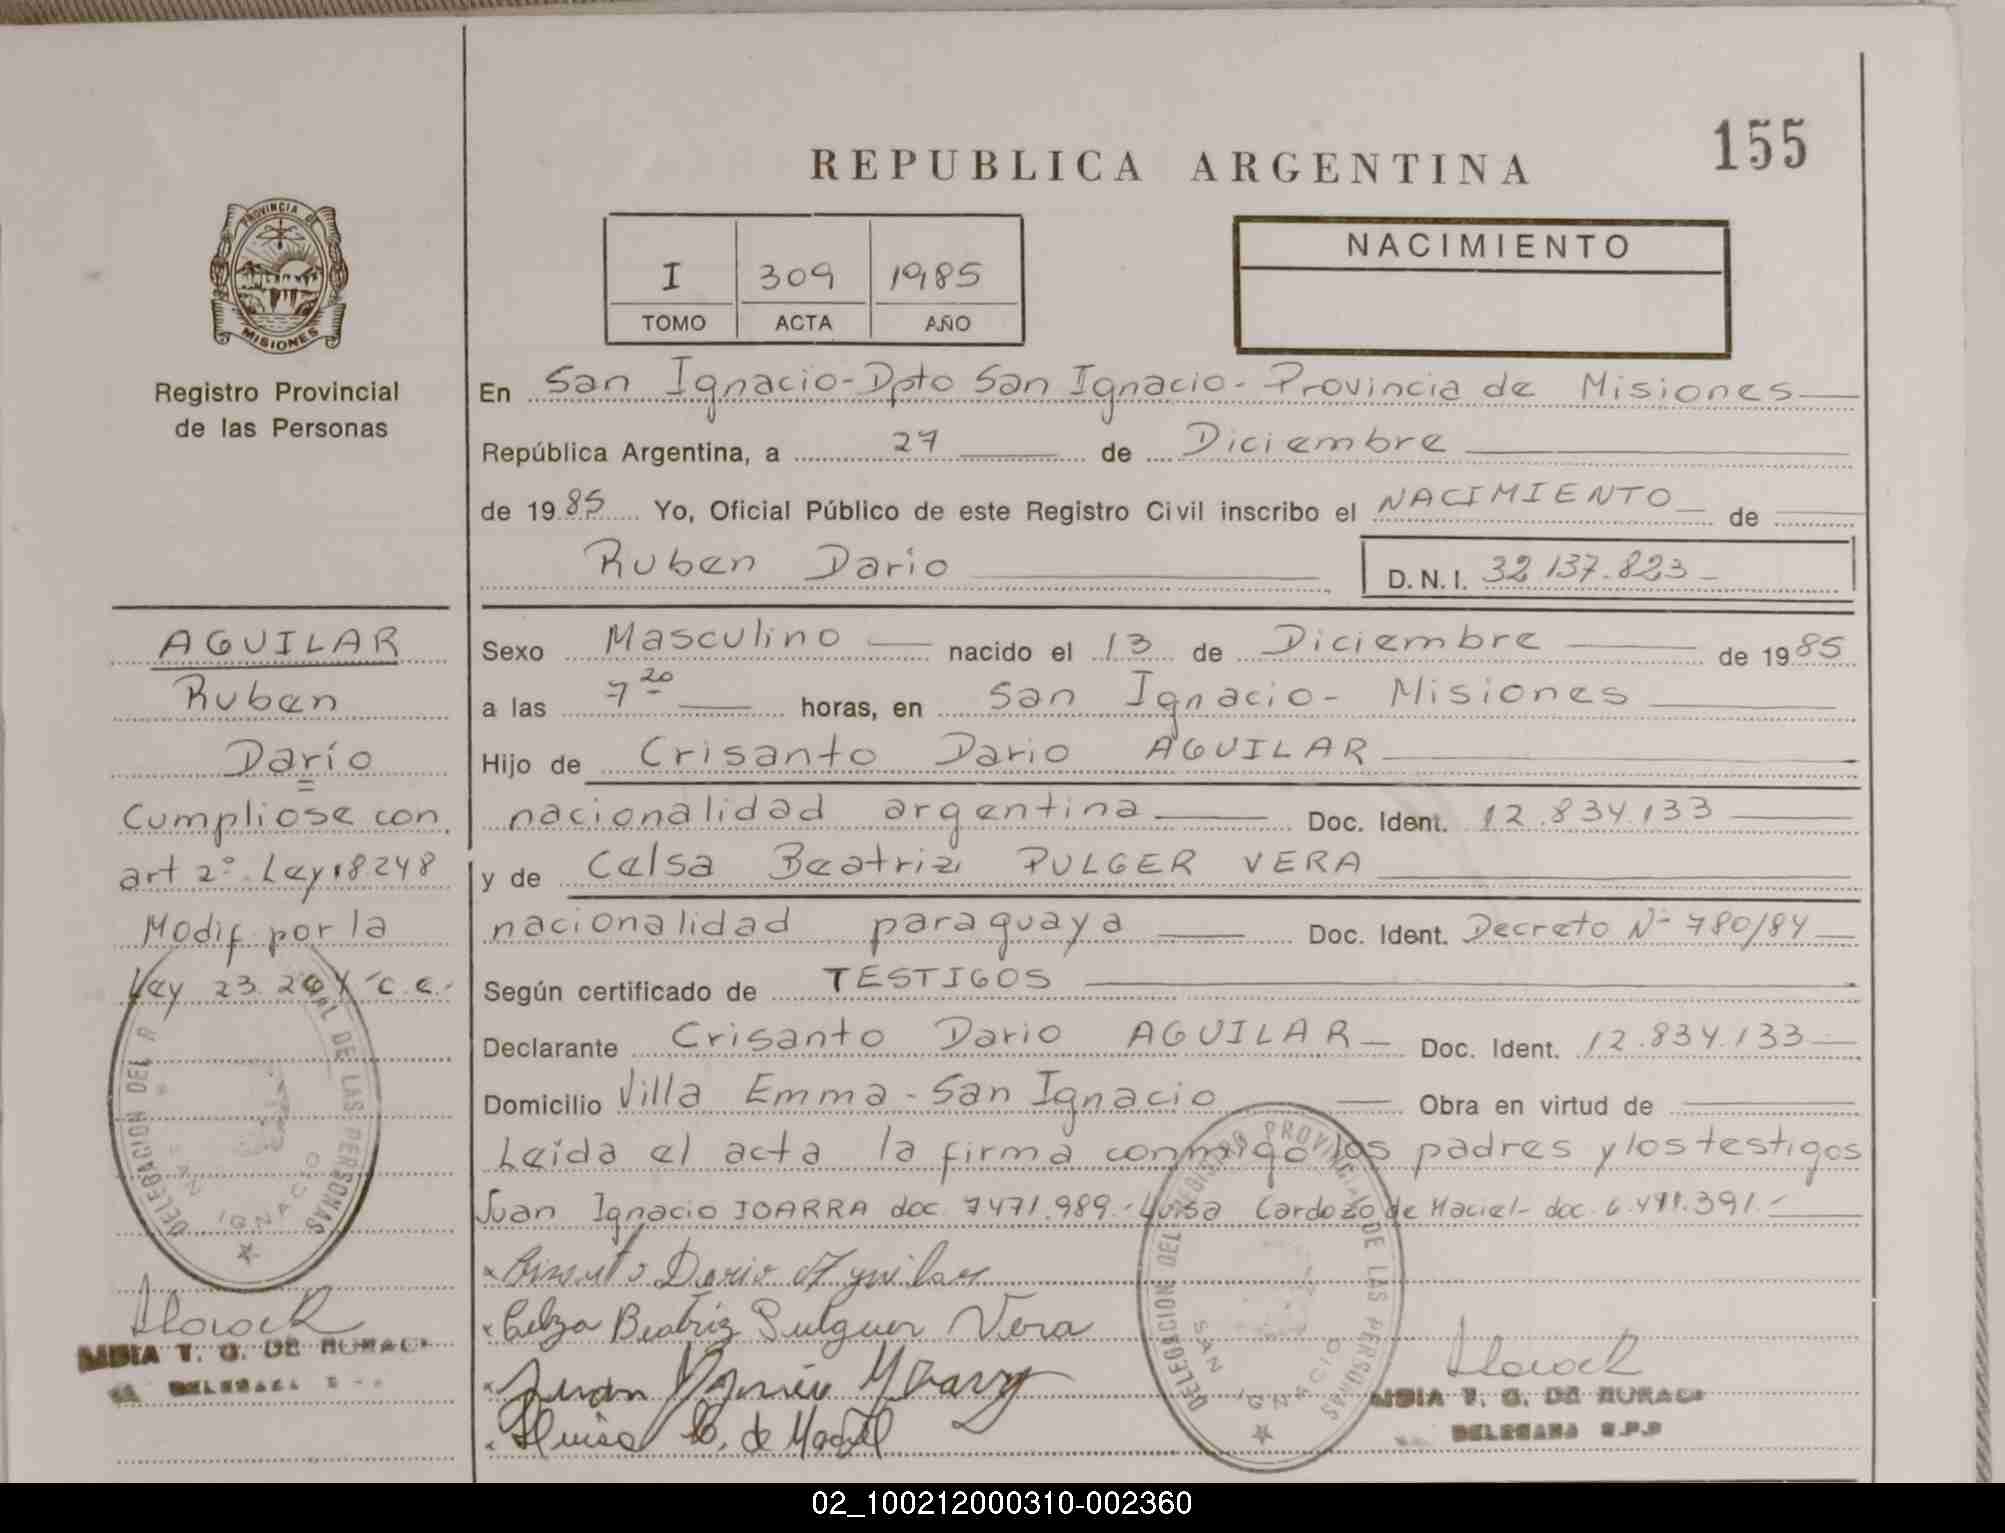 155
REPUBLICA ARGENTINA
PROVINCIA DE
MISIONES
Registro Provincial
de las Personas
I 309 1985
TOMO ACTA AÑO
NACIMIENTO
En San Ignacio-Dpto San Ignacio-Provincia de Misiones
República Argentina, a 27 de Diciembre
de 1985 Yo, Oficial Público de este Registro Civil inscribo el NACIMIENTO de
Ruben Dario D.N.I. 32.137.823
AGUILAR
Ruben
Darío
Cumpliose con
art 2° Ley 18248
Modif por la
Ley 23.264
Sexo Masculino nacido el 13 de Diciembre de 1985
a las 7 20 horas, en San Ignacio- Misiones
Hijo de Crisanto Dario AGUILAR
nacionalidad argentina Doc. Ident. 12.834.133
y de Celsa Beatriz PULGER VERA
nacionalidad paraguaya Doc. Ident. Decreto N° 780/84
Según certificado de TESTIGOS
Declarante Crisanto Dario AGUILAR Doc. Ident. 12.834.133
Domicilio Villa Emma-San Ignacio Obra en virtud de
Leída el acta la firma conmigo los padres y los testigos
Juan Ignacio IOARRA doc. 7471.989.-Luisa Cardozo de Maciel- doc. 6.491.391.-
Dario Aguilar
Celza Beatriz Pulguer Vera
Juan
Luisa C. de Maciel
DELEGACION DEL REGISTRO PROVINCIAL DE LAS PERSONAS
SAN IGNACIO
DELEGACION DEL R DE LAS PERSONAS
SAN IGNACIO
T. G. DE
DELEGADA
T. G. DE
DELEGADA
02_100212000310-002360